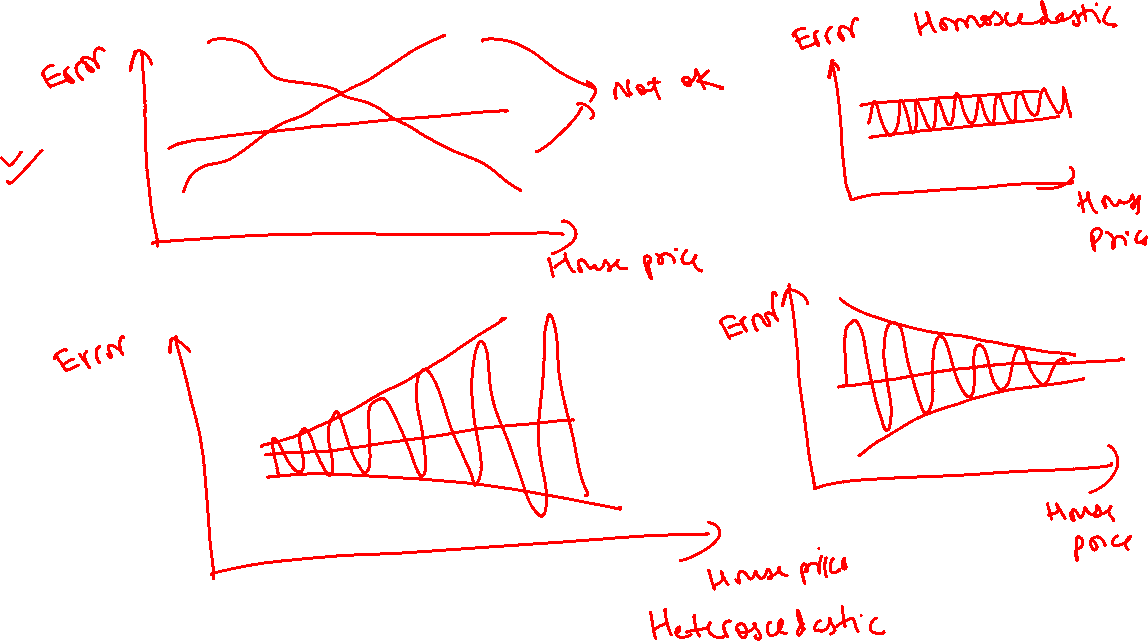 Error
Not ok
House price
Error Homoscedastic
House
Price
Error
House price
Heteroscedastic
Error
House
price